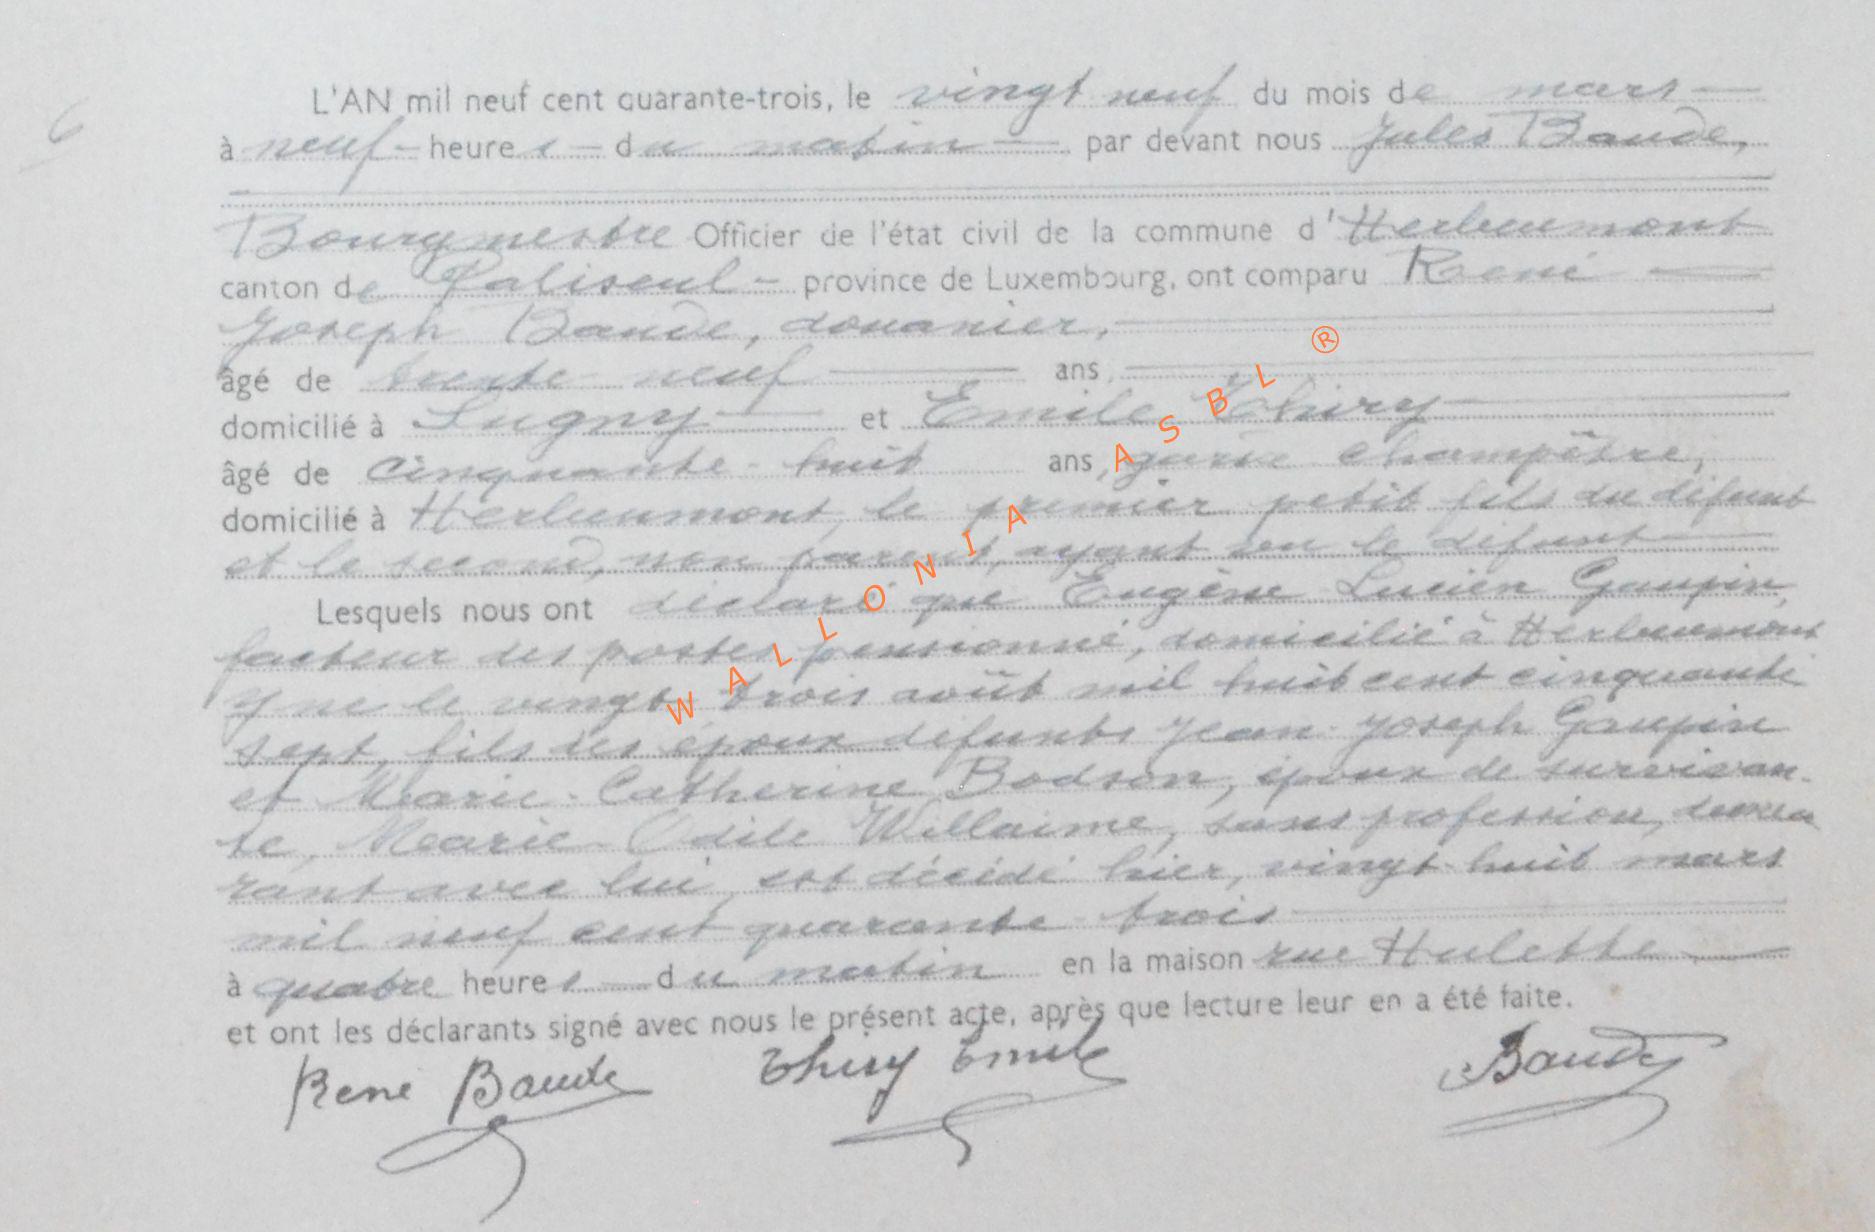 6
L'AN mil neuf cent quarante-trois, le vingt neuf du mois de mars
à neuf heures du matin par devant nous Jules Baude,
Bourgmestre Officier de l'état civil de la commune d'Herbeumont
canton de Paliseul province de Luxembourg, ont comparu René
Joseph Baude, douanier,
âgé de trente neuf ans
domicilié à Sugny et Emile Thiry
âgé de cinquante-huit ans, garde champêtre,
domicilié à Herbeumont, le premier petit fils du défunt
et le second, non parent, ayant vu le défunt
Lesquels nous ont déclaré que Eugène Lucien Gaupin,
facteur des postes pensionné, domicilié à Herbeumont
y né le vingt trois août mil huit cent cinquante
sept, fils des époux défunts Jean-Joseph Gaupin
et Marie-Catherine Bodson, époux de survivan-
te, Marie-Odile Willaime, sans profession, demeu
rant avec lui, est décédé hier, vingt-huit mars
mil neuf cent quarante-trois
à quatre heures du matin en la maison rue Hulette
et ont les déclarants signé avec nous le présent acte, après que lecture leur en a été faite.
René Baude Thiry Emile Baude
WALLONIA ASBL ®